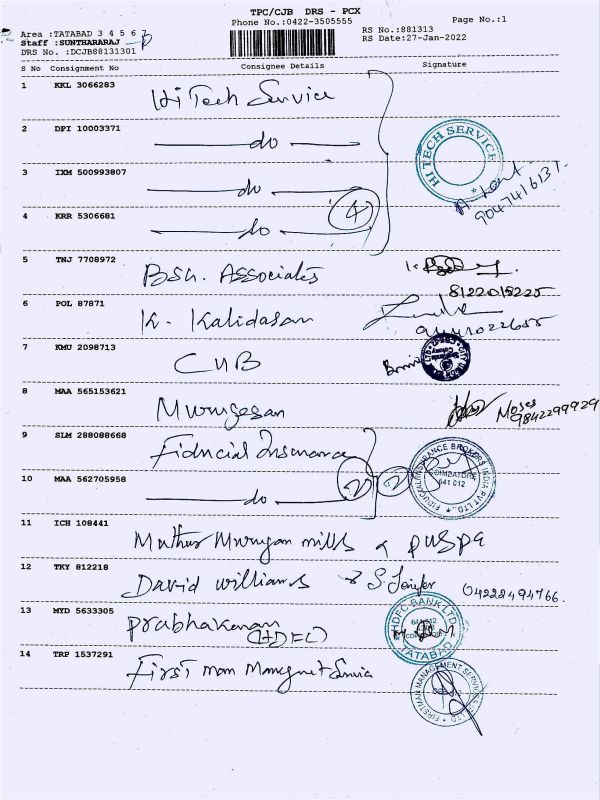 TPC/CJB DRS - PCX
Phone No.:0422-3505555
Page No.:1
Area :TATABAD 3 4 5 6 7
Staff :SUNTHARARAJ
DRS No. :DCJB88131301
RS No.:881313
RS Date:27-Jan-2022
S No Consignment No Consignee Details Signature
1 KKL 3066283 Hi Tech Service
2 DPI 10003371 do
HI TECH SERVICE
3 IXM 500993807 do
9047416131
4 KRR 5306681 do 4
5 TNJ 7708972 BSh. Associates
8122015225
6 POL 87871 K. Kalidasan
7 KMU 2098713 CUB
8 MAA 565153621 Murugesan Moses
9842299929
9 SLM 288088668 Fiducial Insurance
FIDUCIAL INSURANCE BROKERS INDIA PVT LTD.
COIMBATORE
641 012
10 MAA 562705958 do 2 2
11 ICH 108441 Muthu Murugan mills & puspa
12 TKY 812218 David williams & S. Jenifer 04222494766.
13 MYD 5633305 Prabhakaran
(HDFC)
HDFC BANK LTD
TATABAD
14 TRP 1537291 First man Managmet Servia
FIRSTMAN MANAGEMENT SERVICES (P) LTD